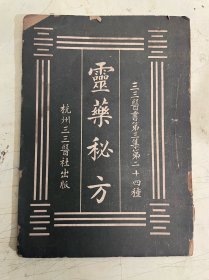 三三醫書第三集第二十四種
靈藥秘方
杭州三三醫社出版